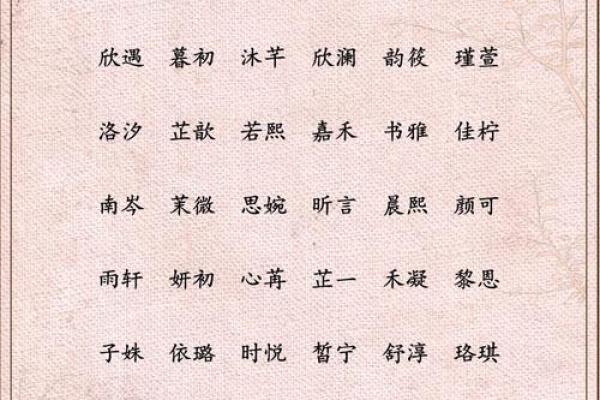 欣遇 暮初 沐芊 欣澜 韵筱 瑾萱
洛汐 芷歆 若熙 嘉禾 书雅 佳柠
南岑 茉微 思婉 昕言 晨熙 颜可
雨轩 妍初 心苒 芷一 禾凝 黎恩
子姝 依璐 时悦 皙宁 舒淳 珞琪